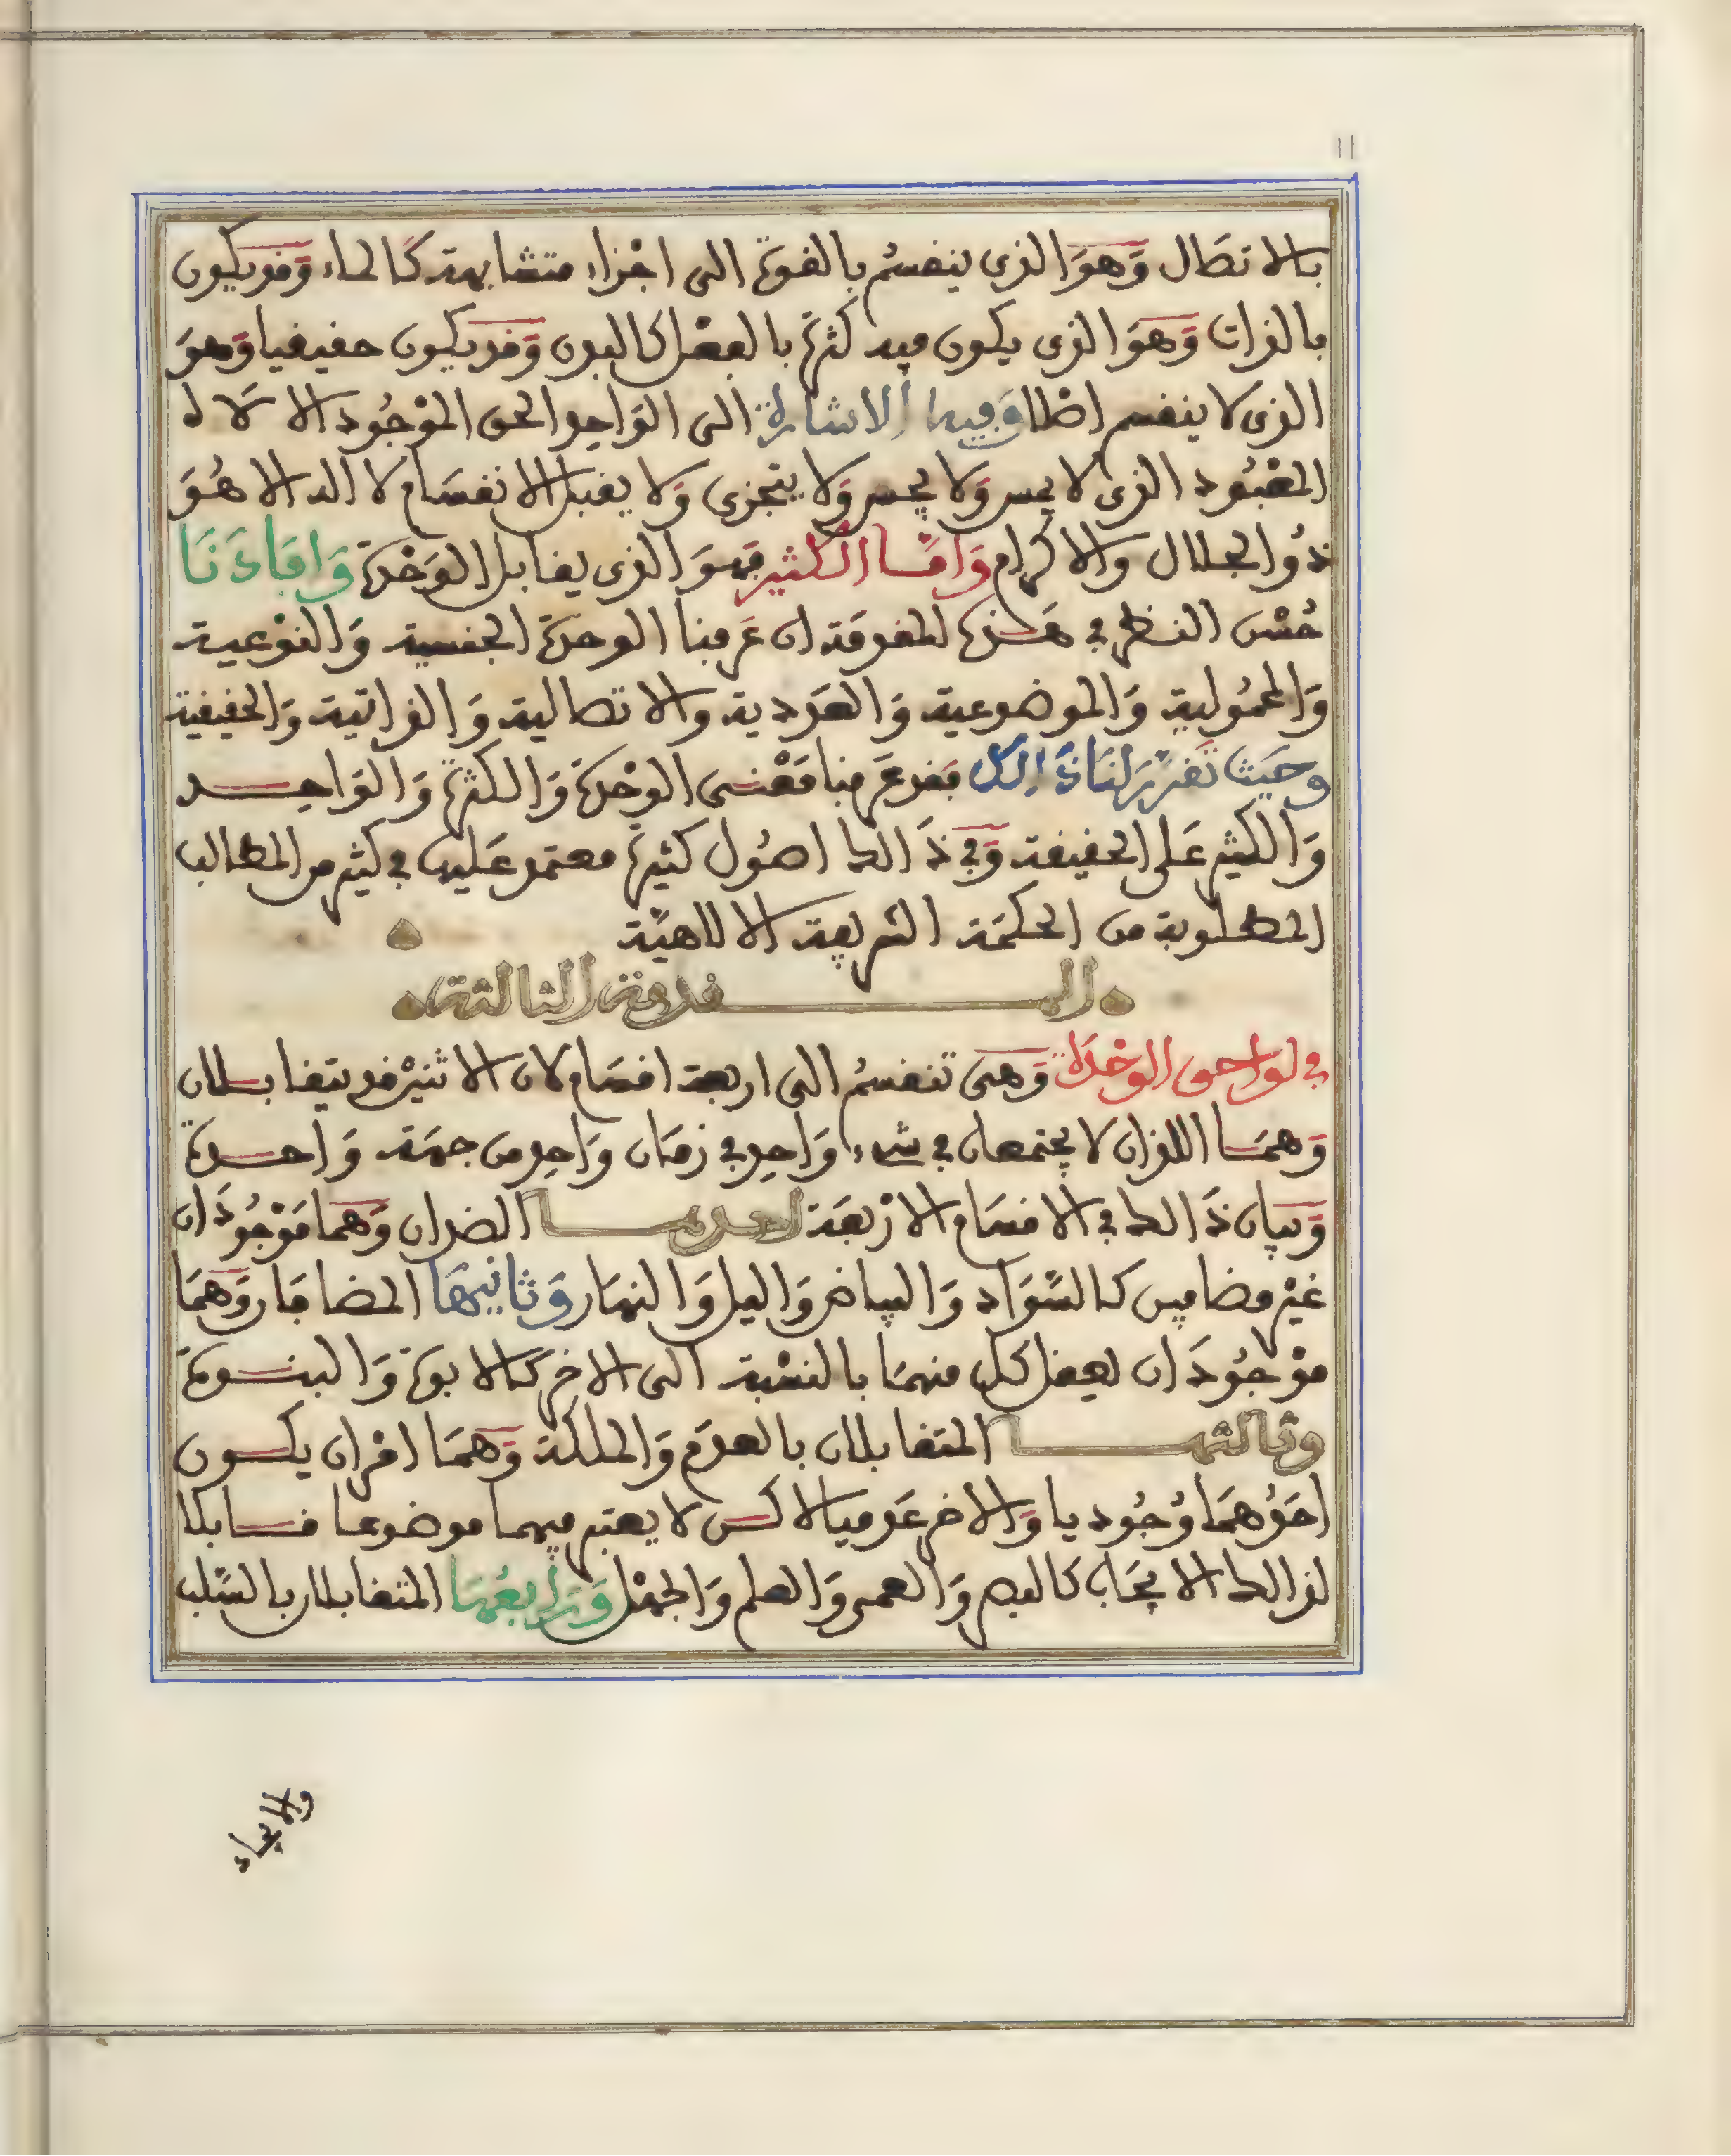 11
بالاتصال وَهوَ الذى ينقسمُ بالقوة الى اجْزاء متشابهة كالماء وَقد يكون
بالذات وَهوَ الذى يكون فيه كثرة بالفعْل كالبدن وَقد يكون حقيقيا وَهوَ
الذى لا ينقسم اصْلا وَفيها الاشارة الى الوَاحِد الحق الموْجُود الا لَا لَه
المعْبُود الذى لا يمس وَلا يحس وَلا يتجزى وَلا يقبل الانقسَام لا اله الا هُوَ
ذُو الجلال والاكرام وَامَّا الكثير فهوَ الذى يقابل الوَحْدة وَافَادَنَا
حُسْن النظر فى هَذه المقدمَة ان عَرفنا الوحدة الجنسية وَالنوْعية
وَالمحمُولية وَالموضوعية وَالعَددية والاتصالية وَالذاتية وَالحقيقية
وحَيث تقرّر لنَا ذَالك فقد عَرفنا مَعْنى الوحْدة وَالكثرة وَالوَاحِد
وَالكثير عَلى الحقيقة وَفى ذَالك اصُول كثيرة معتمد عَليها فى كثير من المطالب
المطلوبة من الحكمَة الشريفة الالاهيَّة
المقدمة الثالثة
فى لواحق الوَحْدَة وَهىَ تنقسمُ الى اربعة اقسَام لان الاثنيْن قد يتقابلان
وَهمَا اللذان لا يجتمعان فى شىء وَاحِد فى زمَان وَاحِد من جهَة وَاحدة
وَبيان ذَالك فى الاقسَام الارْبعَة احدهما الضدان وَهمَا مَوْجُودَان
غيْر مضافين كالسَّوَاد وَالبياض وَاليل وَالنهَار وَثانيهمَا المضافَان وَهمَا
موْجُودَان يعقل كل منهمَا بالنسْبة الى الاخر كالابوة وَالبنوة
وثالثهما المتقابلان بالعدَم وَالملكة وَهمَا امْران يكون
احَدُهمَا وُجُوديا وَالاخر عَدميا لاكن لا يعتبر فيهما موضوعا قابلا
لذالك الايجَاب كالبصر وَالعمى وَالعلم وَالجهْل وَرَابعُهمَا المتقابلان بالسَّلب
والايجاب